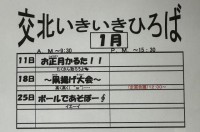 交北いきいきひろば
1月
A.M～9:30 P.M.～15:30
11日 お正月かるた！！
18日 ～凧揚げ大会～
25日 ボールであそぼー
イエーイ